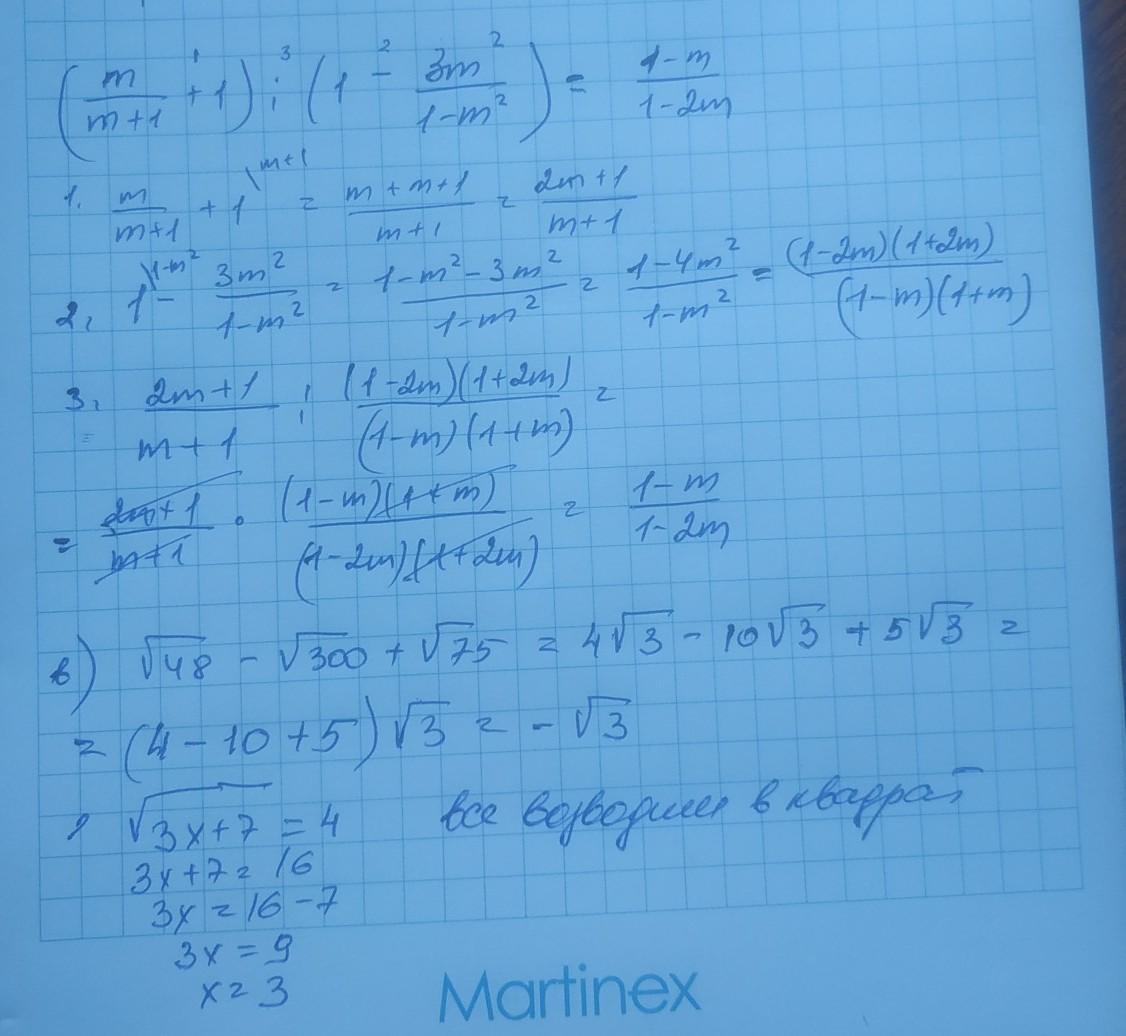 (m/(m+1) +¹ 1) :³ (1 −² 3m²/(1-m²)) = (1-m)/(1-2m)
1. m/(m+1) + 1\ᵐ⁺¹ = (m+m+1)/(m+1) = (2m+1)/(m+1)
2. 1\¹⁻ᵐ² − 3m²/(1-m²) = (1-m²-3m²)/(1-m²) = (1-4m²)/(1-m²) = (1-2m)(1+2m)/((1-m)(1+m))
3. (2m+1)/(m+1) : (1-2m)(1+2m)/((1-m)(1+m)) =
= (2m+1)/(m+1) · (1-m)(1+m)/((1-2m)(1+2m)) = (1-m)/(1-2m)
в) √48 - √300 + √75 = 4√3 - 10√3 + 5√3 =
= (4-10+5)√3 = -√3
√(3x+7) = 4 все возводим в квадрат
3x+7 = 16
3x = 16-7
3x = 9
x = 3
Martinex